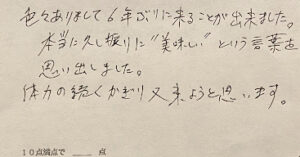 色々ありまして6年ぶりに来ることが出来ました。
本当に久し振りに"美味しい"という言葉を
思い出しました。
体力の続くかぎり又来ようと思います。
10点満点で ＿＿ 点